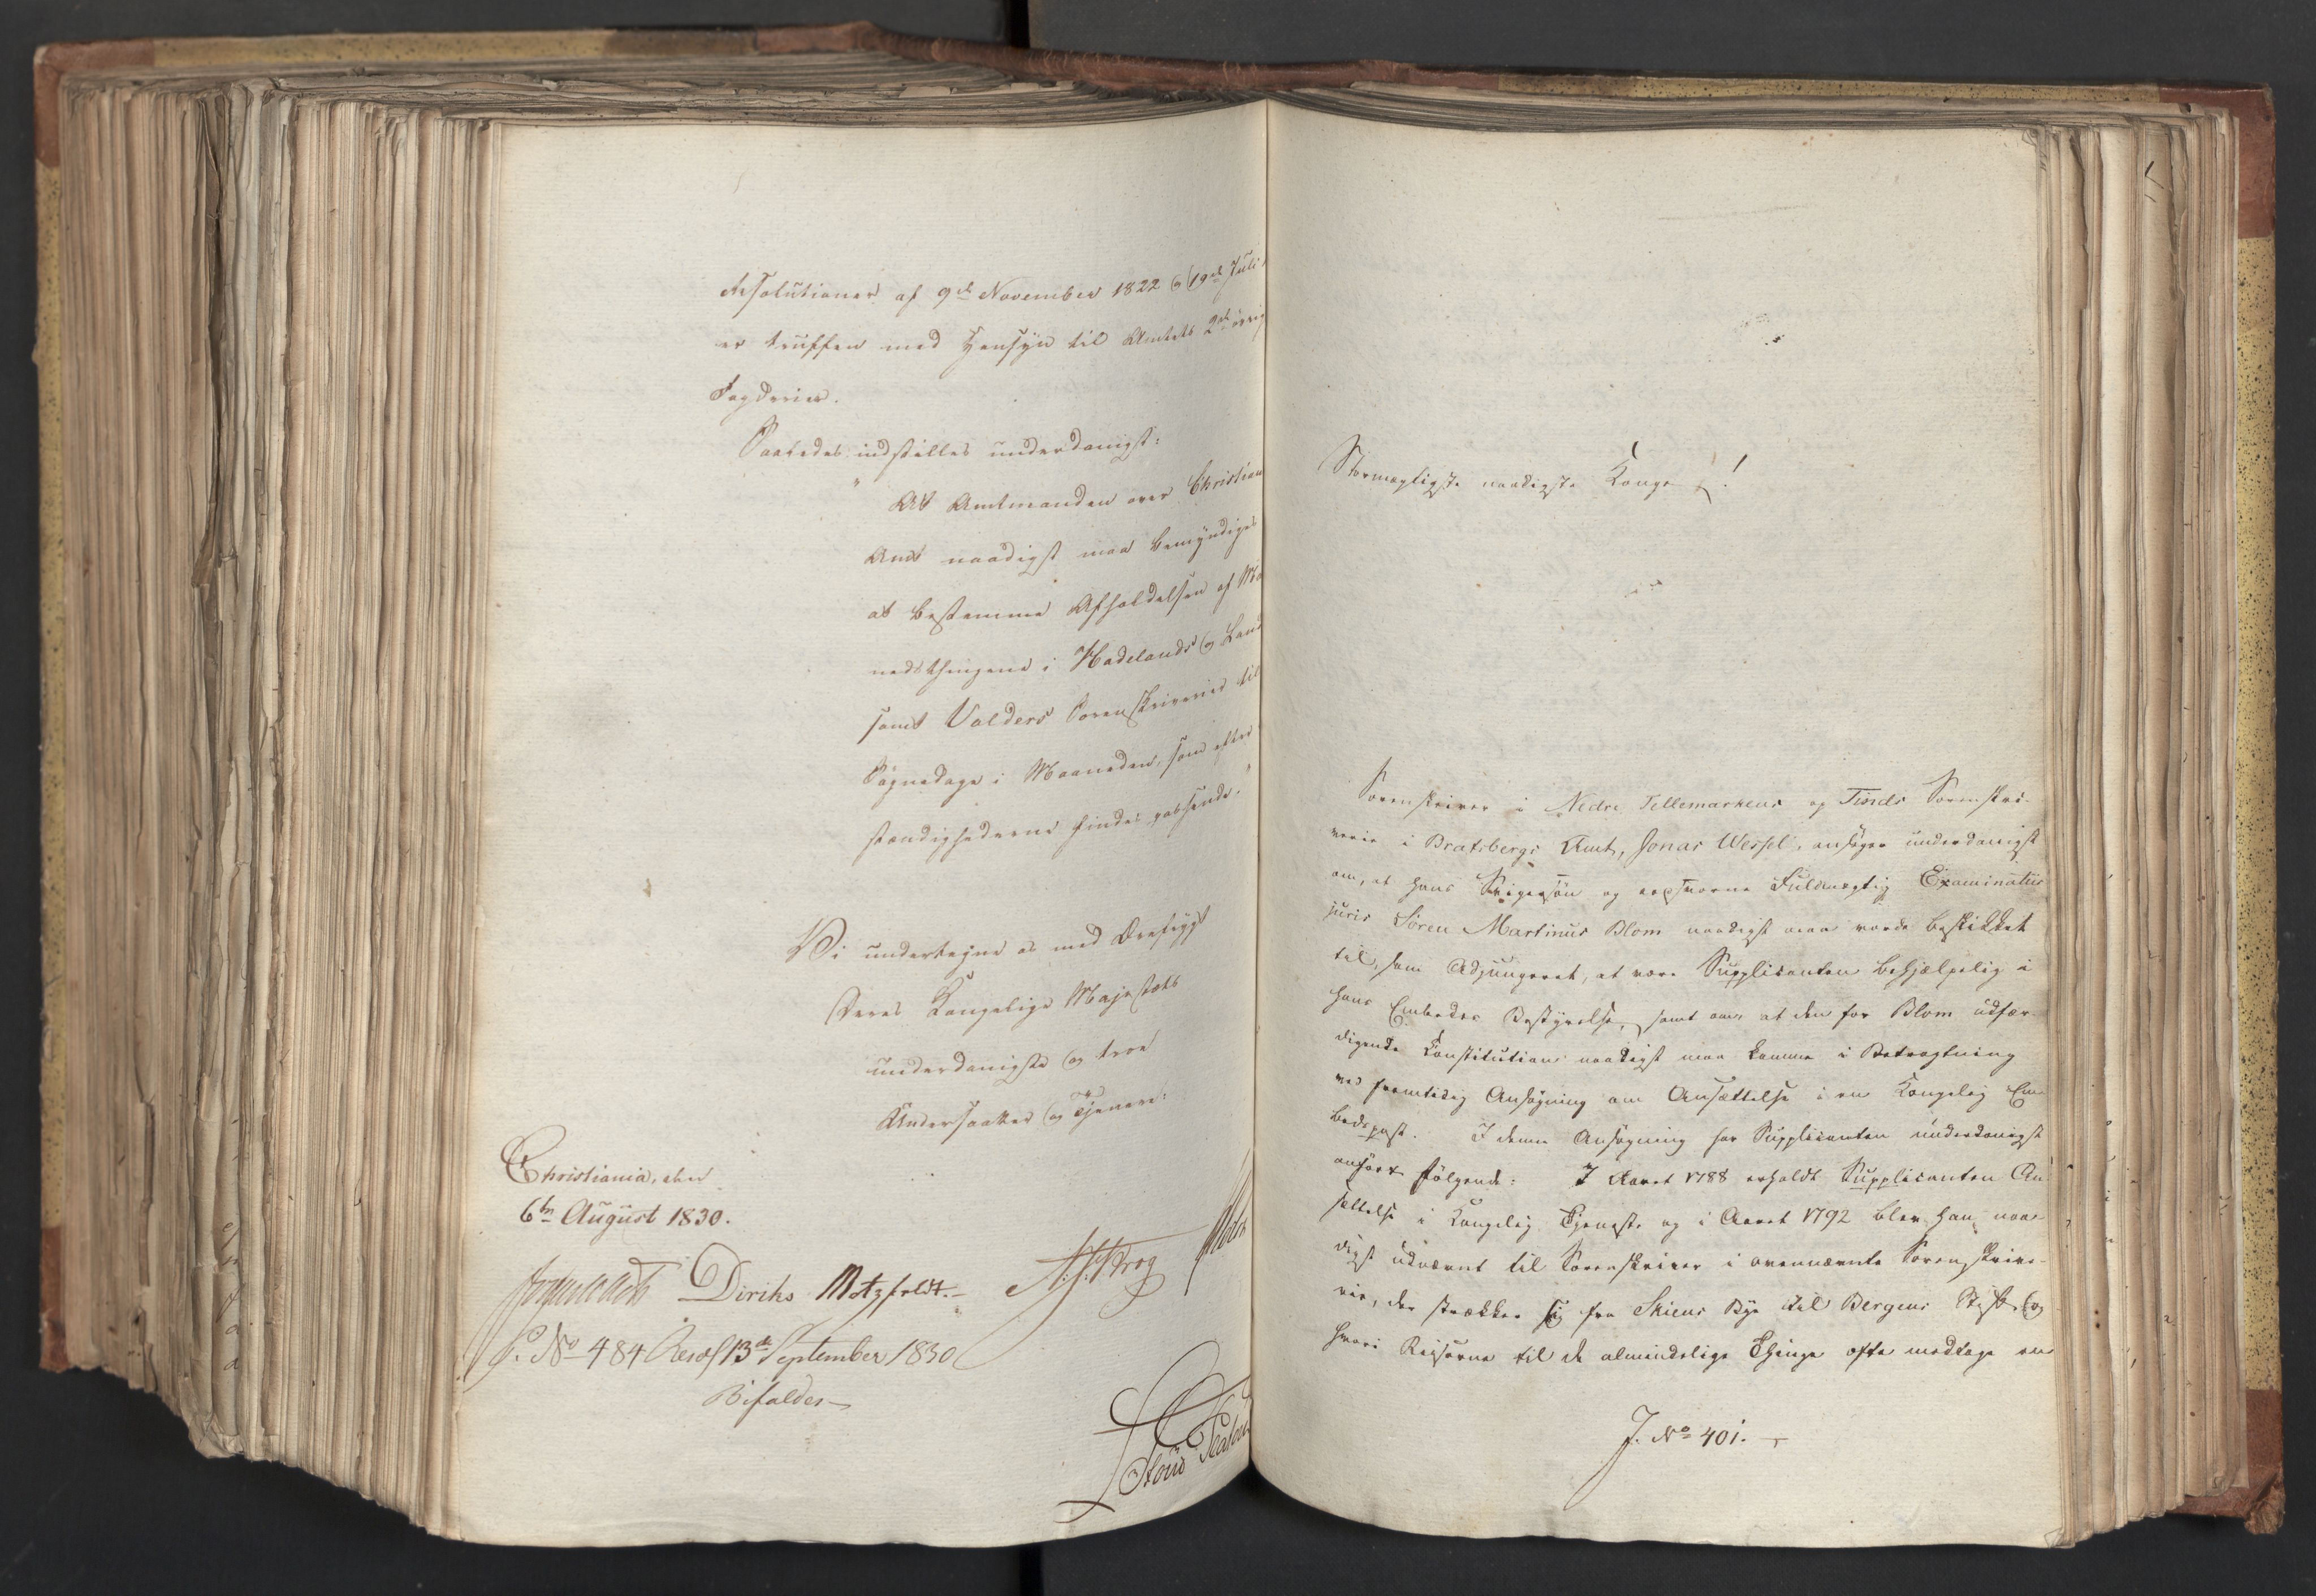 Resolutioner af 9de November 1822 og 19de Juli
er truffen med Hensyn til Amtets 2de øvrig
Fogderier.
Saaledes indstilles underdanigst:
" At Amtmanden over Christian
Amt naadigst maa bemyndiges
at bestemme Afholdelsen af Ma
nedsthingene i Hadelands og Land
samt Valders Sorenskriverier til
Søgnedage i Maaneden, som efter
stændighederne findes passende."
Vi undertegne os med Ærefrygt
Deres Kongelige Majestæts
underdanigste og troe
Undersaatter og Tjenere:
Christiania, den
6te August 1830.
Diriks Motzfeldt.
P. No 484 Resol 13de September 1830
Bifaldes
Stormægtigste naadigste Konge!
Sorenskriver i Nedre Tellemarkens og Tinds Sorenskri-
verie i Bratsbergs Amt, Jonas Wessel, ansøger underdanigst
om, at hans Svigersøn og eedsvorne Fuldmægtig Examinatus
juris Søren Martinus Blom naadigst maa vorde beskikket
til, som Adjungeret, at være Supplicanten behjælpelig i
hans Embedes Bestyrelse, samt om at den for Blom udfær-
digende Constitution naadigst maa komme i Betragtning
ved fremtidig Ansøgning om Ansættelse i en Kongelig Em-
bedspost. I denne Ansøgning har Supplicanten underdanigst
anført følgende: I Aaret 1788 erholdt Supplicanten An-
sættelse i Kongelig Tjeneste og i Aaret 1792 blev han naa-
digst udnævnt til Sorenskriver i ovennævnte Sorenskrive-
rie, der strækker sig fra Skiens Bye til Bergens Stift og
hvori Reiserne til de almindelige Thinge ofte medtage en
J. No 401.